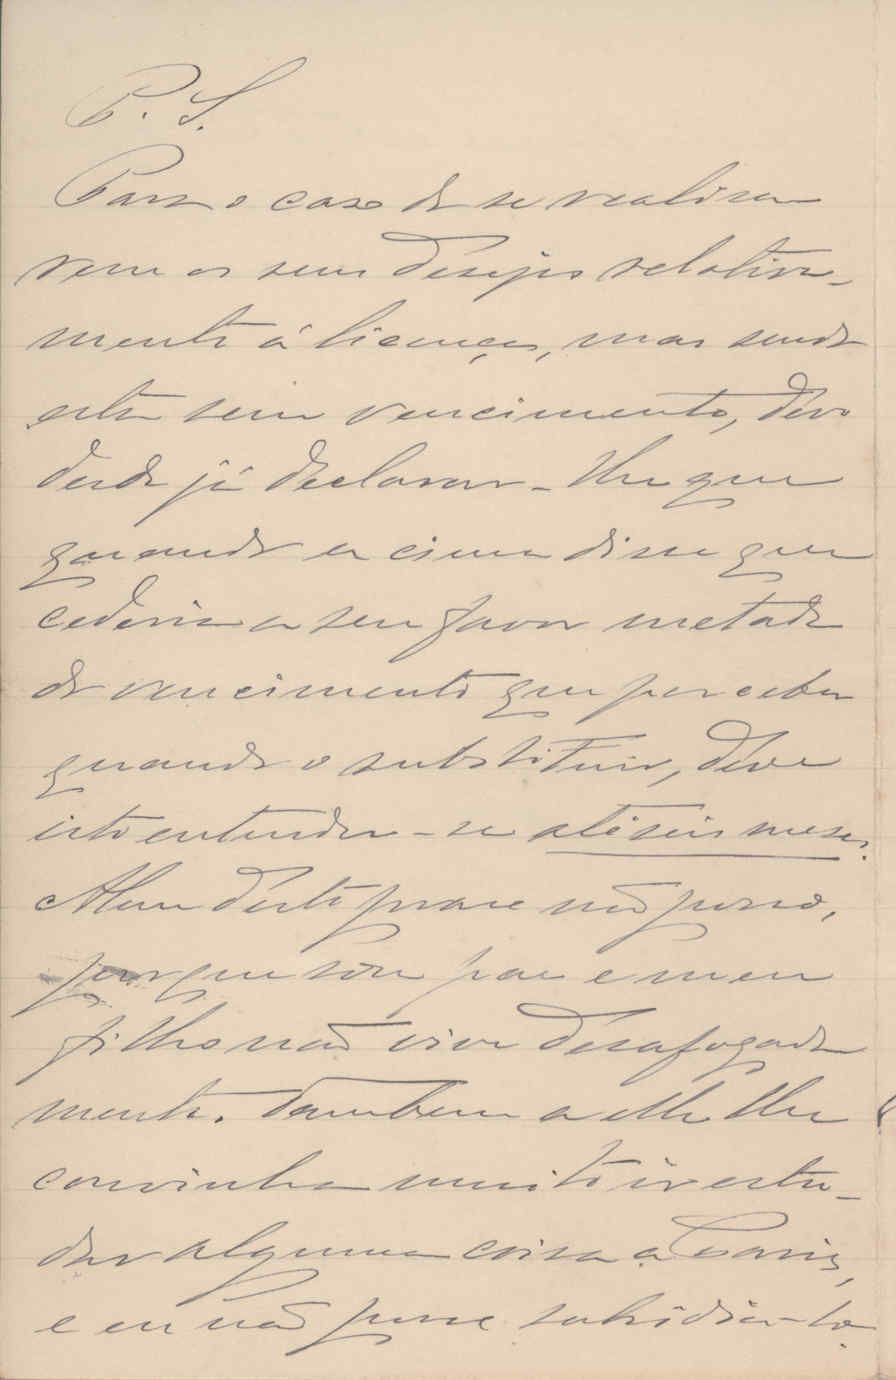 P. S.
Para o caso de se realisa-
rem os seus desejos relativa-
mente á licença, mas sendo
esta sem vencimento, devo
desde já declarar-lhe que
quando a cima disse que
cederia a seu favor metade
do vencimento que perceber
quando o substituir, deve
isto entender-se até seis meses.
Alem d'este prase não posso,
porque sou pae e meu
filho não vive desafogada
mente. Tambem a elle lhe
convinha muito ir estu-
dar alguma coisa a Paris,
e eu não posse subsidia-lo.